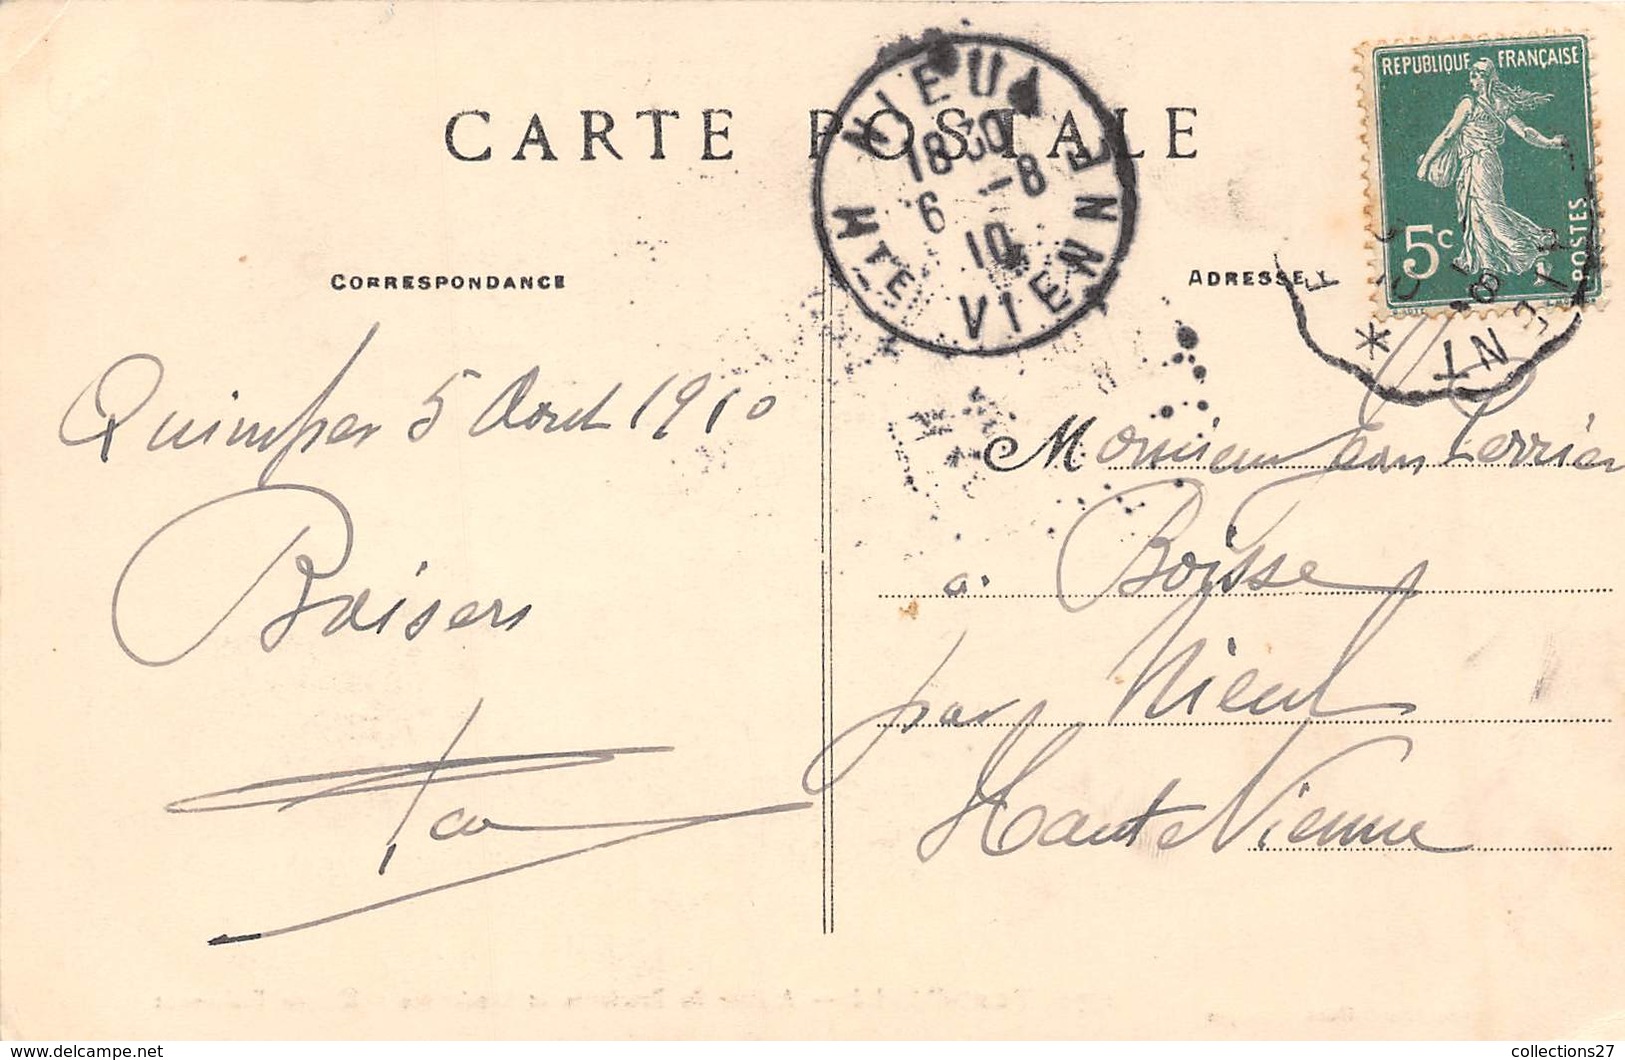 CARTE POSTALE
CORRESPONDANCE
ADRESSE
REPUBLIQUE FRANÇAISE
5c
POSTES
NIEUL
18 30
6 -8
10
HTE VIENNE
Quimper 5 Aout 1910
Baisers
M Monsieur Jean Perrier
a. Boisse
par Nieul
Haute Vienne
collections27